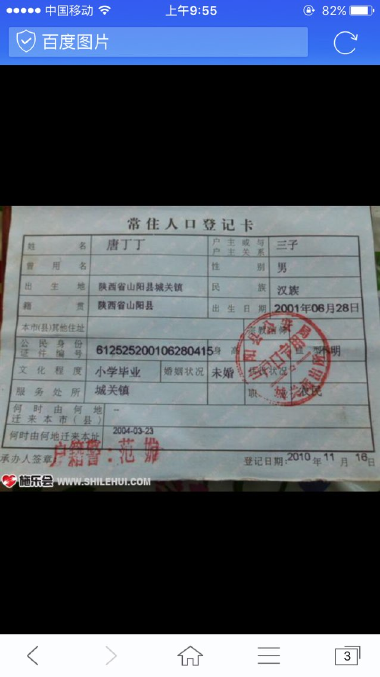 中国移动 上午9:55 82%
百度图片
常住人口登记卡
姓名 唐丁丁 户主或与户主关系 三子
曾用名 性别 男
出生地 陕西省山阳县城关镇 民族 汉族
籍贯 陕西省山阳县 出生日期 2001年06月28日
本市(县)其他住址
公民身份证件编号 612525200106280415 身高
文化程度 小学毕业 婚姻状况 未婚
服务处所 城关镇 农民
何时由何地迁来本市(县) -
何时由何地迁来本址 2004-03-23
承办人签章: 户籍警:范 登记日期:2010年11月16日
施乐会 WWW.SHILEHUI.COM
3